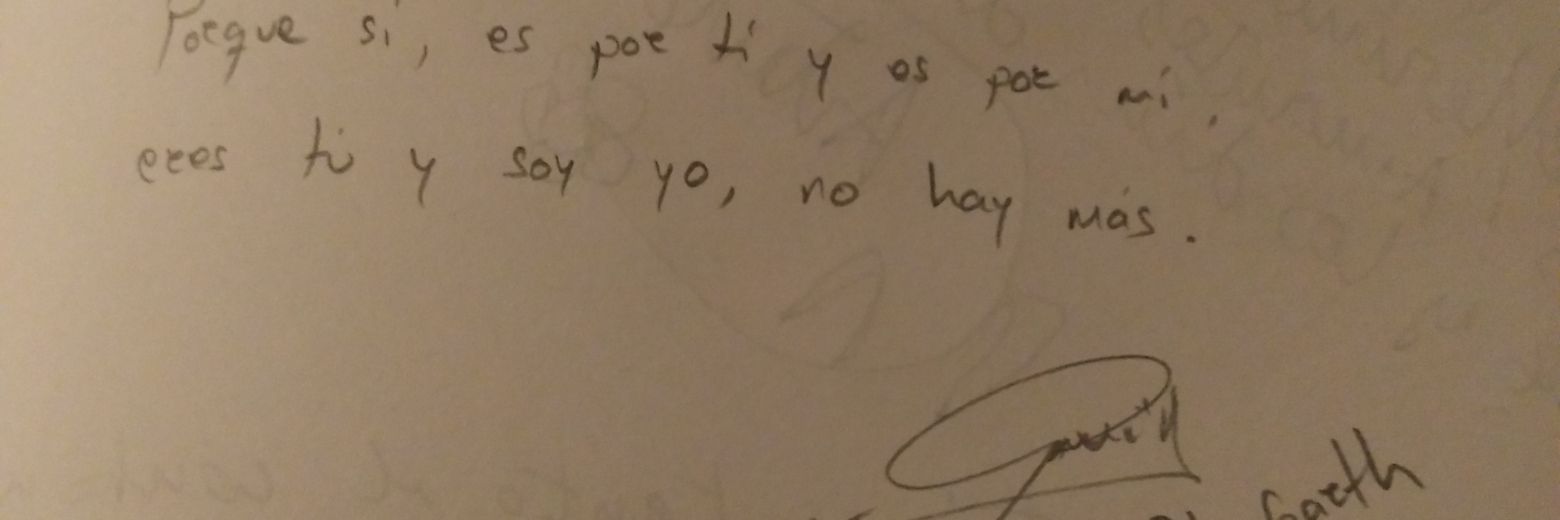 Porque si, es por ti y es por mi,
eres tu y soy yo, no hay más.
Garth